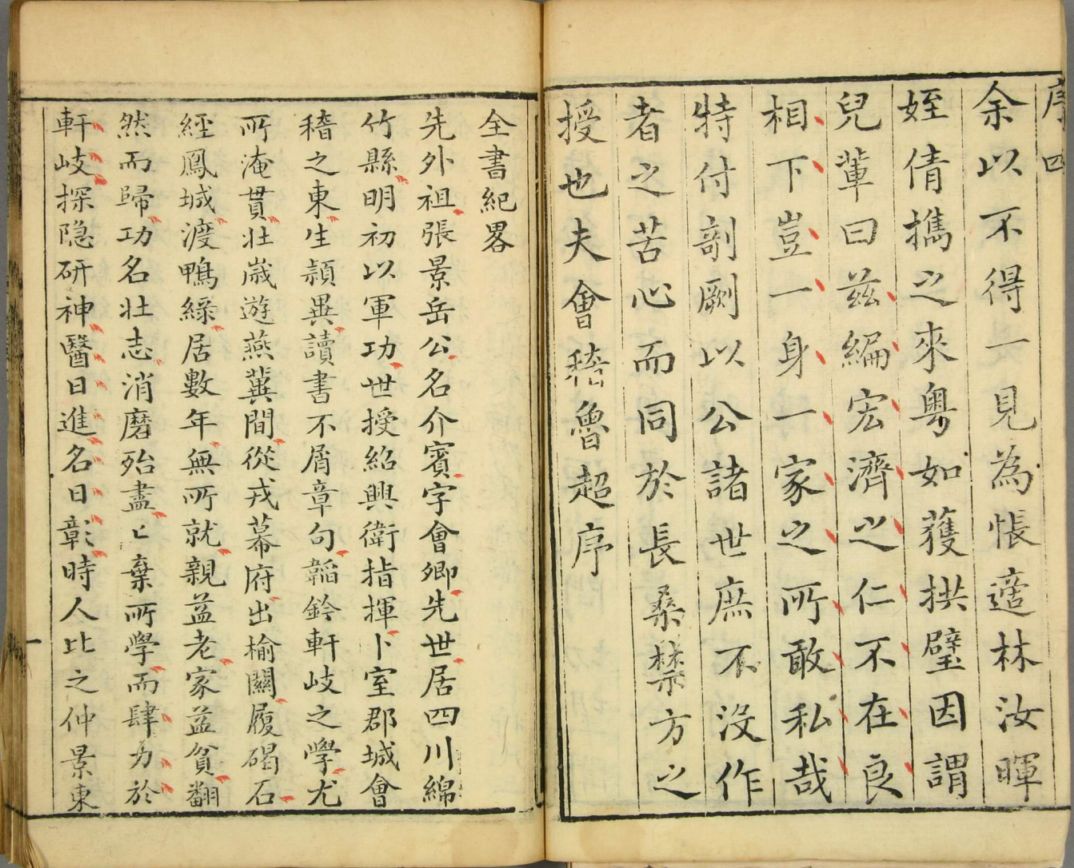 序四
余以不得一見為悵適林汝暉
姪倩携之來粵如獲拱璧因謂
兒輩曰兹編宏濟之仁不在良
相下豈一身一家之所敢私哉
特付剞劂以公諸世庶不沒作
者之苦心而同於長桑禁方之
授也夫會稽魯超序
全書紀畧
先外祖張景岳公名介賓字會卿先世居四川綿
竹縣明初以軍功世授紹興衛指揮卜室郡城會
稽之東生頴異讀書不屑章句韜鈐軒岐之學尤
所淹貫壮歲遊燕冀間從戎幕府出榆關履碣石
經鳳城渡鴨緑居數年無所就親益老家益貧翻
然而歸功名壮志消磨殆盡乚棄所學而肆力於
軒岐探隐研神醫日進名日彰時人比之仲景東
一